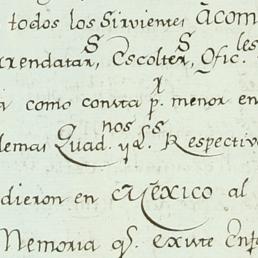 todos los Sirvientes àcom
rrendatarS, EscolterS, Ofic.les
como consta p.r menor en
demas Quad.nos y dS. Respectiv
dieron en MEXICO al
Memoria qS. existe Enp